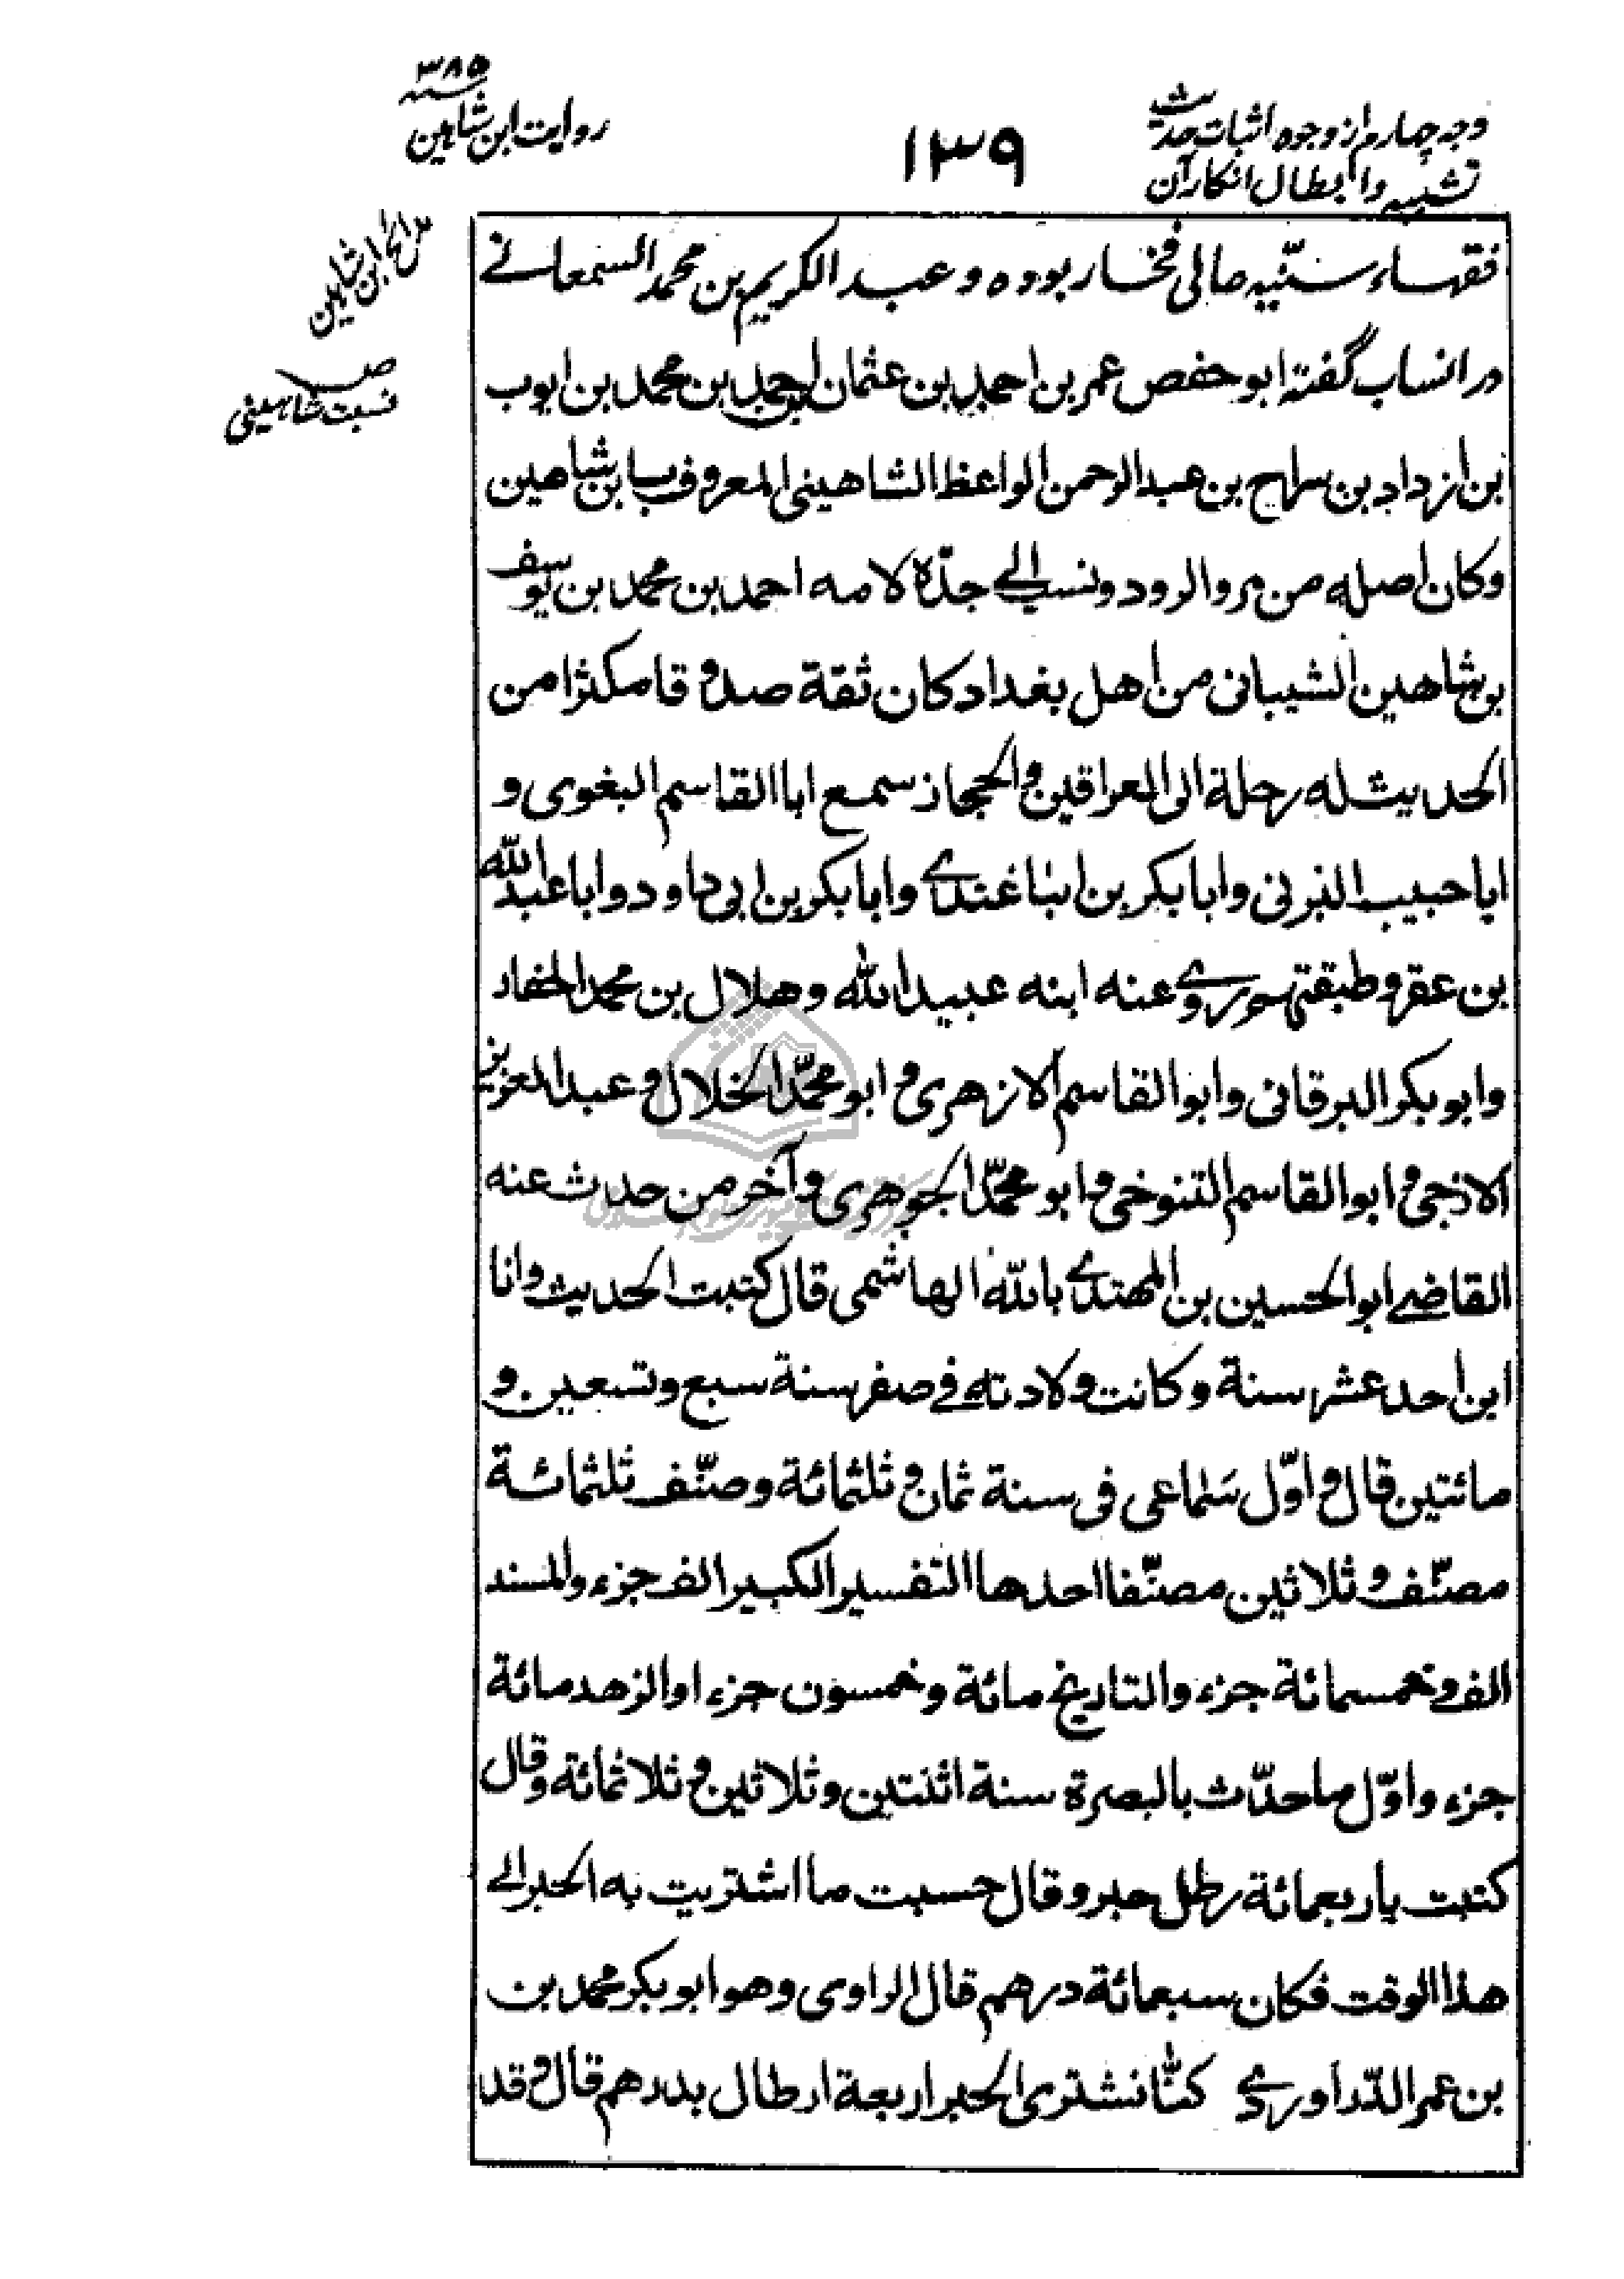 وجه چهارم از وجوه اثبات حدیث
تشبیه و ابطال انکار آن
۱۳۹
۳۸۵
روایت ابن شاهین
مدائح ابن شاهین
نسبت شاهینی
فقهاء سنّیه عالی فخار بوده و عبد الکریم بن محمد السمعانے
در انساب گفته ابو حفص عمر بن احمد بن عثمان بن احمد بن محمد بن ایوب
بن ازداد بن سراح بن عبد الرحمن الواعظ الشاهینی المعروف بابن شاهین
وکان اصله من مرو الرود ونسب الے جدّه لامه احمد بن محمد بن یوسف
بن شاهین الشیبانی من اهل بغداد کان ثقة صدوقا مکثرا من
الحدیث له رحلة الی العراقین والحجاز سمع ابا القاسم البغوی و
ابا حبیب البرنی وابا بکر بن الباغندے وابا بکر بن ابی داود وابا عبد اللّه
بن عفر وطبقتهم روے عنه ابنه عبید اللّه وهلال بن محمد الحفار
وابو بکر البرقانی وابو القاسم الازهری وابو محمّد الخلال وعبد العزیز
الازجی وابو القاسم التنوخی وابو محمّد الجوهری وآخر من حدث عنه
القاضے ابو الحسین بن المهتدے باللّه الهاشمی قال کتبت الحدیث وانا
ابن احد عشر سنة وکانت ولادته فی صفر سنة سبع وتسعین و
مائتین قال واوّل سماعی فی سنة ثمان وثلثمائة وصنّف ثلثمائة
مصنّف وثلاثین مصنّفا احدها التفسیر الکبیر الف جزء والمسند
الف وخمسمائة جزء والتاریخ مائة وخمسون جزء اوالزهد مائة
جزء واوّل ما حدّث بالبصرة سنة اثنتین وثلاثین وثلاثمائة وقال
کتبت باربعمائة رطل حبر وقال حسبت ما اشتریت به الحبر الے
هذا الوقت فکان سبعمائة درهم قال الراوی وهو ابو بکر محمد بن
بن عمر الدّراوردے کنّا نشتری الحبر اربعة ارطال بدرهم قال وقد